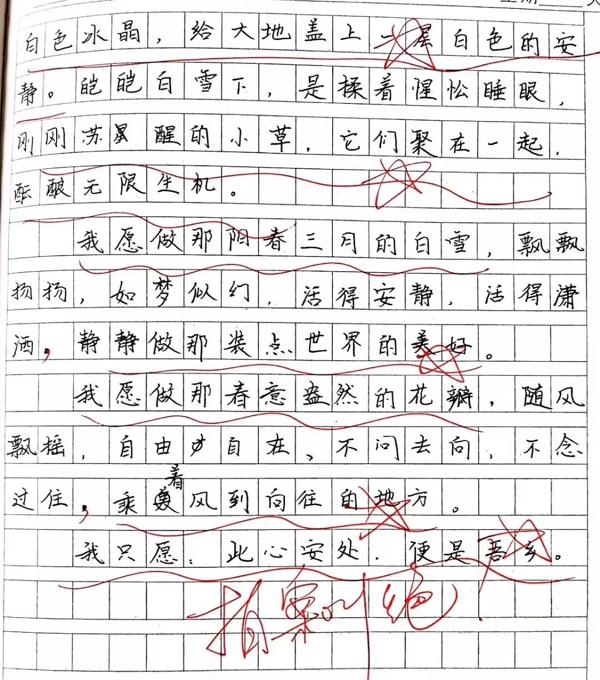 白色冰晶，给大地盖上一层白色的安
静。皑皑白雪下，是揉着惺忪睡眼，
刚刚苏醒的小草，它们聚在一起，
酝酿无限生机。
我愿做那阳春三月的白雪，飘飘
扬扬，如梦似幻，活得安静，活得潇
洒，静静做那装点世界的美好。
我愿做那春意盎然的花瓣，随风
飘摇，自由自在，不问去向，不念
过往，乘着风到向往的地方。
我只愿：此心安处，便是吾乡。
拍案叫绝